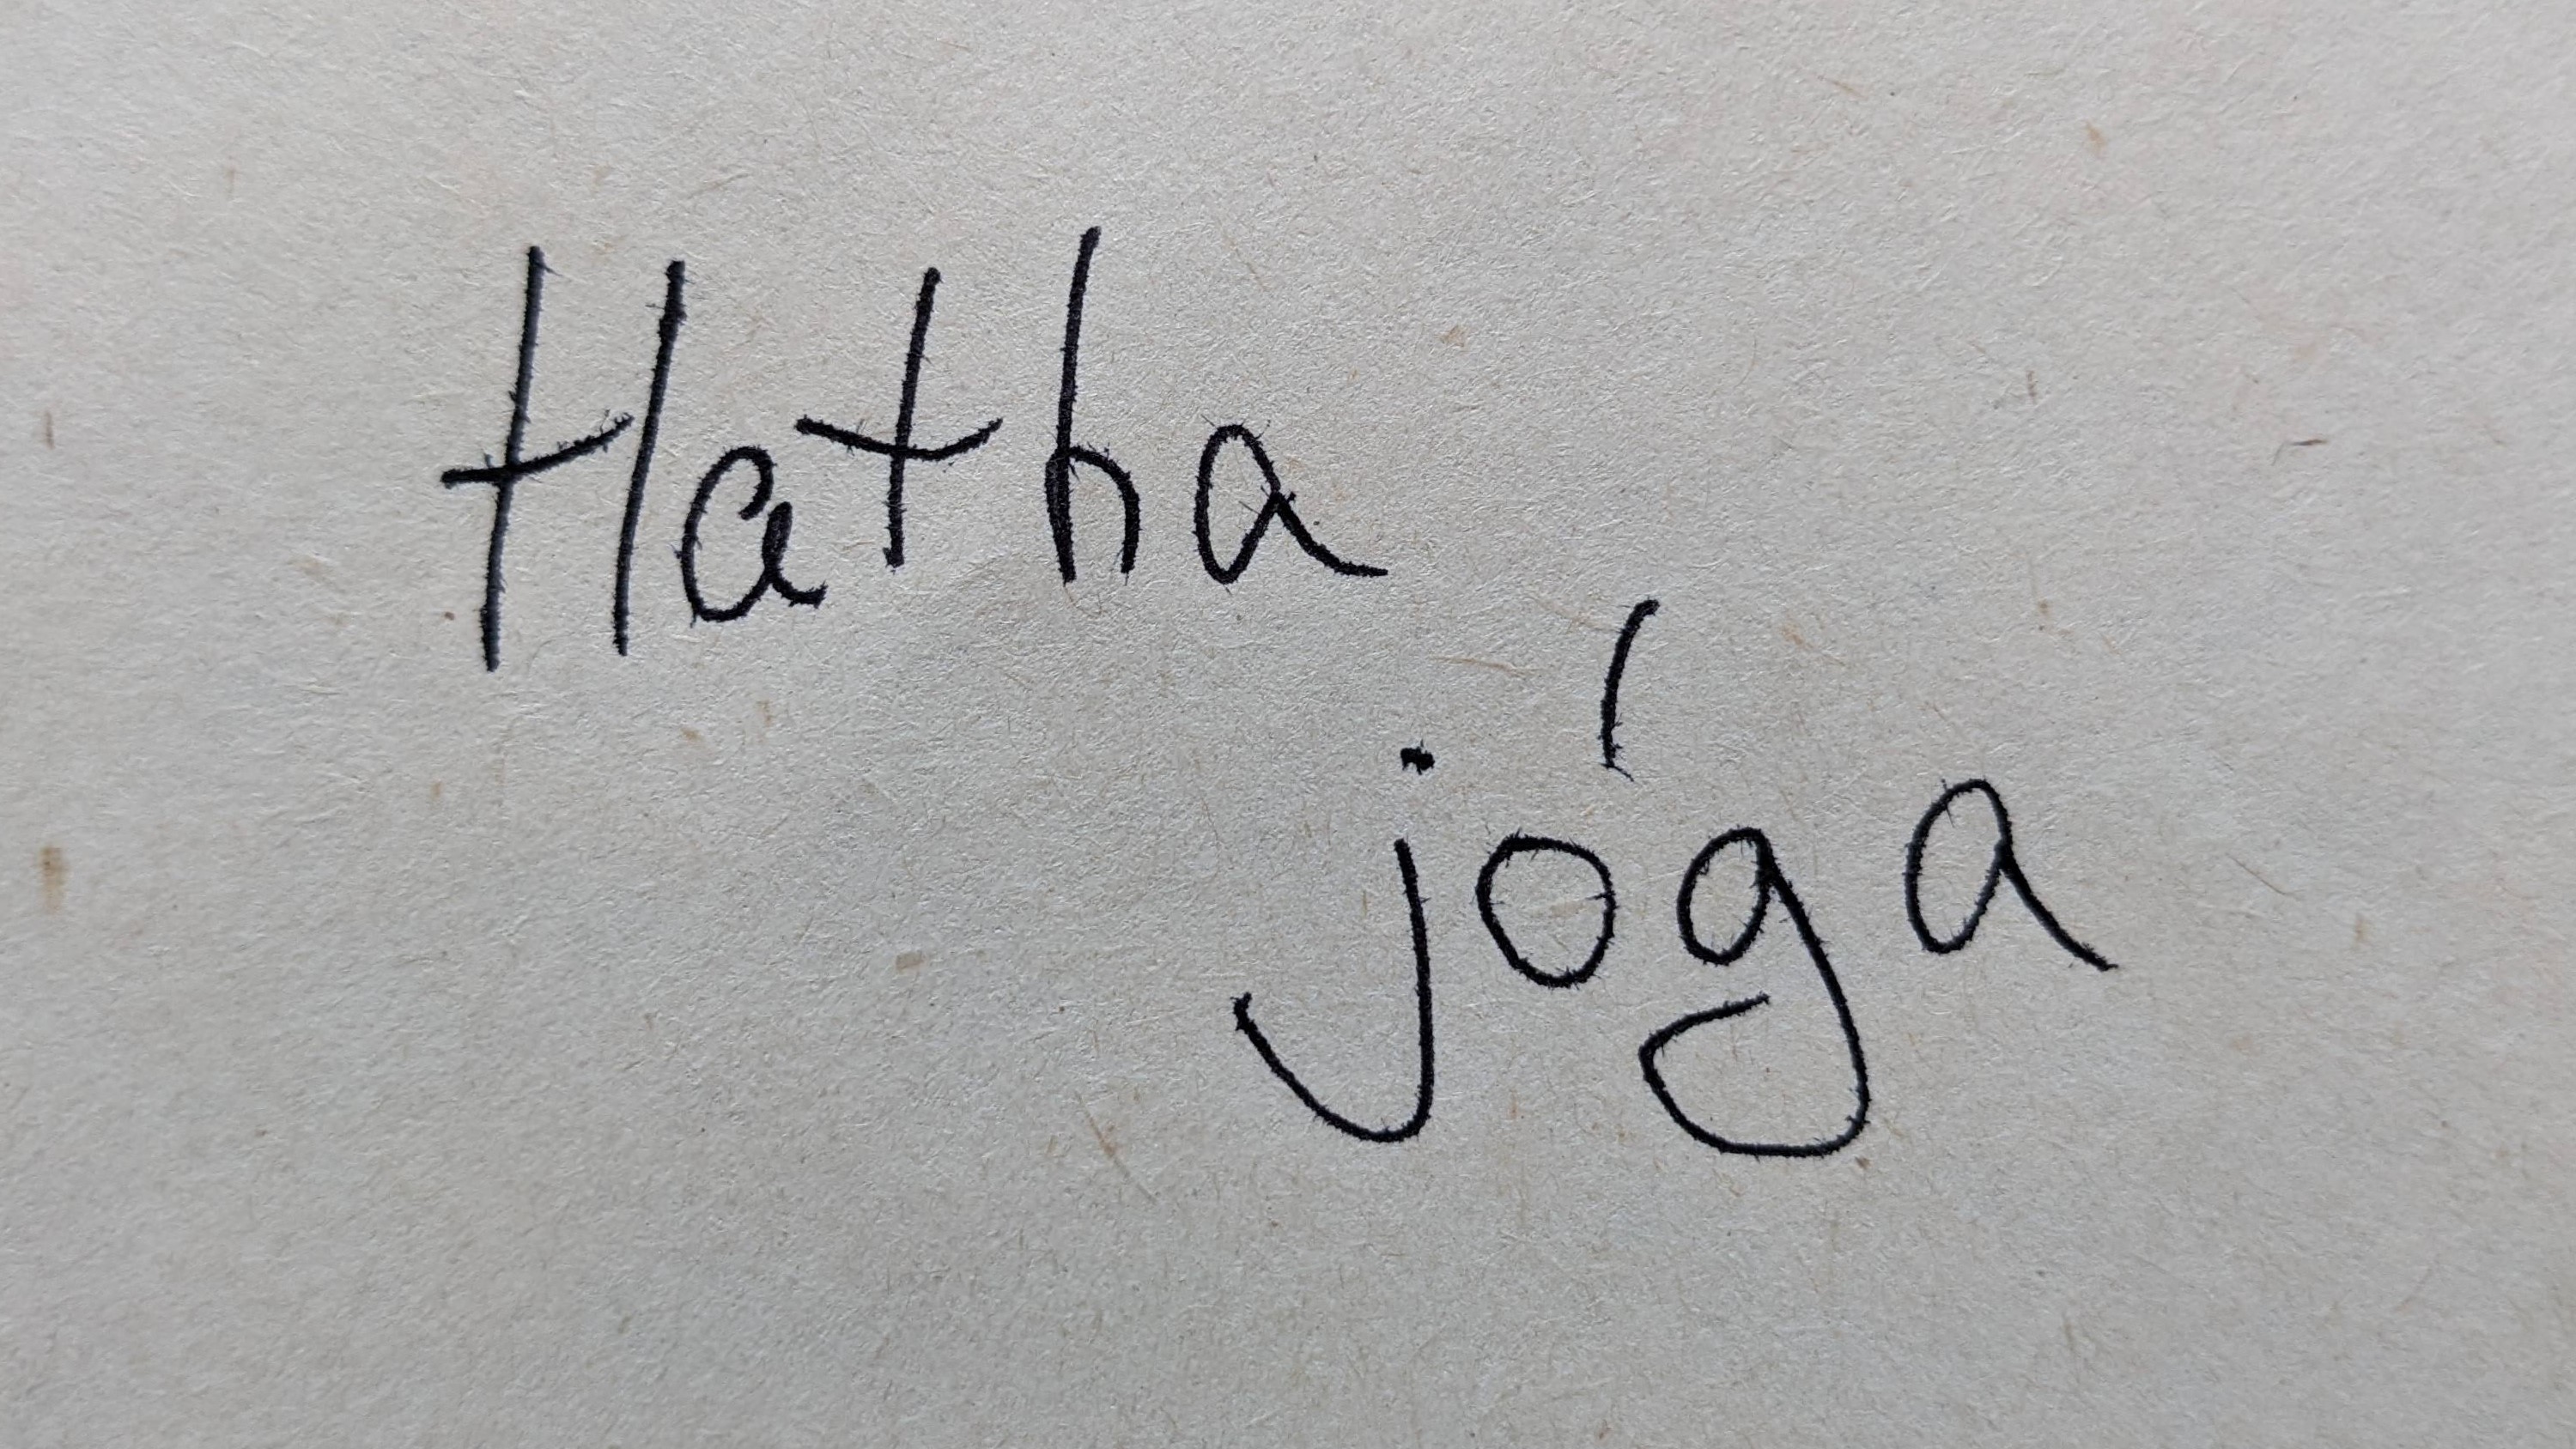 Hatha
jóga